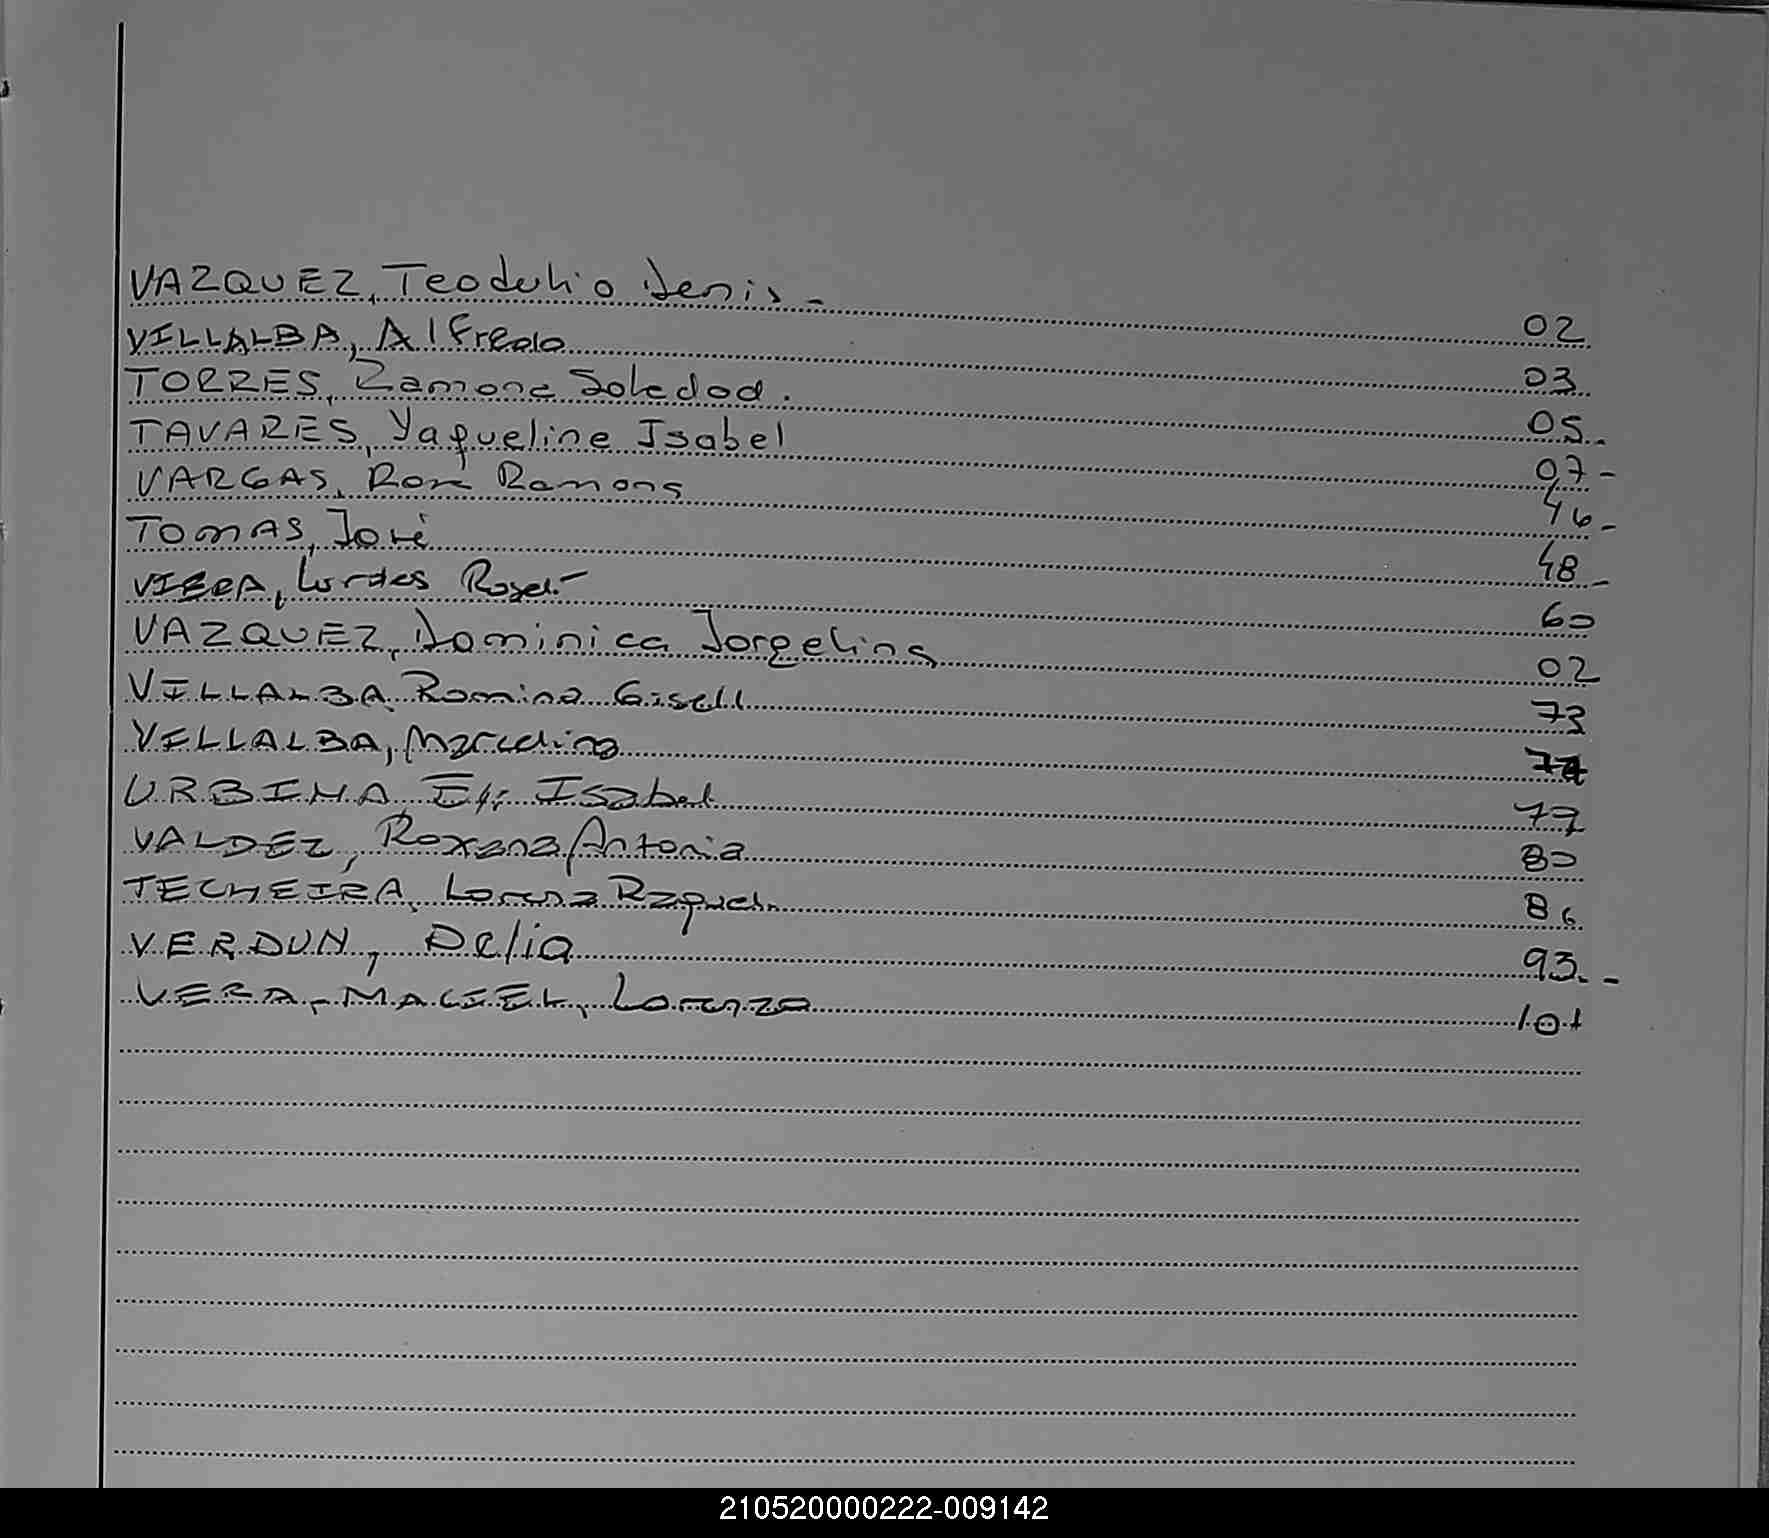 VAZQUEZ, Teodulio Denis - 02
VILLALBA, Alfredo 03
TORRES, Ramona Soledad. 05-
TAVARES, Yaqueline Isabel 07-
VARGAS, Ramona 46-
TOMAS, José 48-
VIERA, Lurdes 60
VAZQUEZ, Dominica Jorgelina 02
VILLALBA, Romina Gisell 73
VILLALBA, Marcelina 74
URBINA, Isabel 77
VALDEZ, Roxana Antonia 80
TECHEIRA, Lorena Raquel. 86
VERDUN, Delia 93--
VERA-MACIEL, Lorenzo 101
210520000222-009142